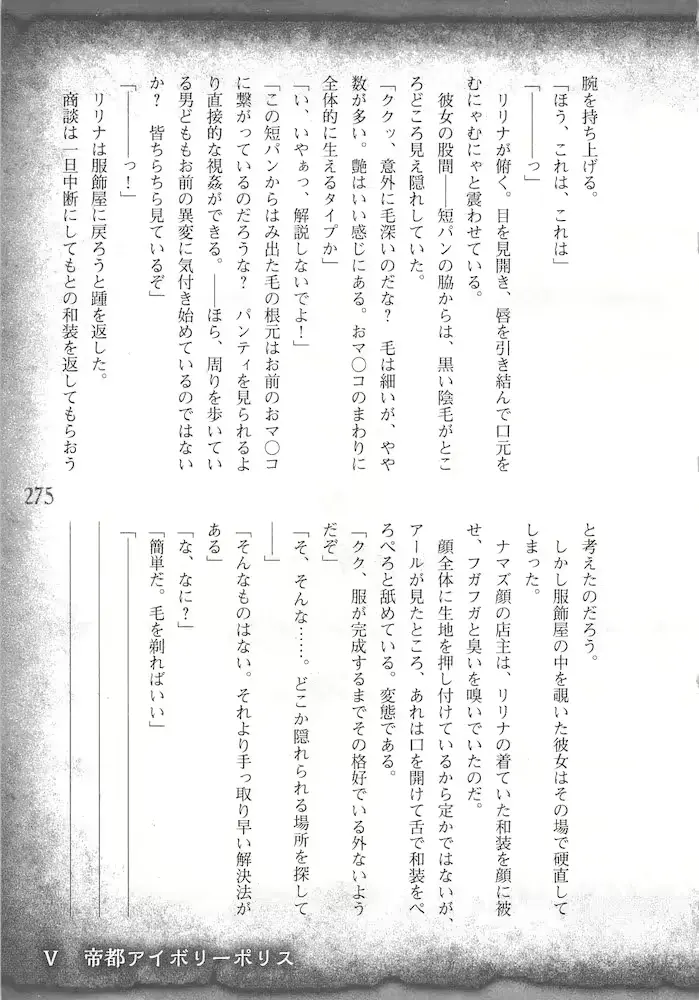 腕を持ち上げる。
「ほう、これは、これは」
「―――っ」
リリナが俯く。目を見開き、唇を引き結んで口元を
むにゃむにゃと震わせている。
彼女の股間――短パンの脇からは、黒い陰毛がとこ
ろどころ見え隠れしていた。
「ククッ、意外に毛深いのだな？　毛は細いが、やや
数が多い。艶はいい感じにある。おマ〇コのまわりに
全体的に生えるタイプか」
「い、いやぁっ、解説しないでよ！」
「この短パンからはみ出た毛の根元はお前のおマ〇コ
に繋がっているのだろうな？　パンティを見られるよ
り直接的な視姦ができる。――ほら、周りを歩いてい
る男どももお前の異変に気付き始めているのではない
か？　皆ちらちら見ているぞ」
「―――っ！」
リリナは服飾屋に戻ろうと踵を返した。
商談は一旦中断にしてもとの和装を返してもらおう
と考えたのだろう。
しかし服飾屋の中を覗いた彼女はその場で硬直して
しまった。
ナマズ顔の店主は、リリナの着ていた和装を顔に被
せ、フガフガと臭いを嗅いでいたのだ。
顔全体に生地を押し付けているから定かではないが、
アールが見たところ、あれは口を開けて舌で和装をペ
ろぺろと舐めている。変態である。
「クク、服が完成するまでその格好でいる外ないよう
だぞ」
「そ、そんな……。どこか隠れられる場所を探して
――」
「そんなものはない。それより手っ取り早い解決法が
ある」
「な、なに？」
「簡単だ。毛を剃ればいい」
「――――――――――――――――
――――――――――――――――――
――――――――――――――――――
275
Ⅴ　帝都アイボリーポリス